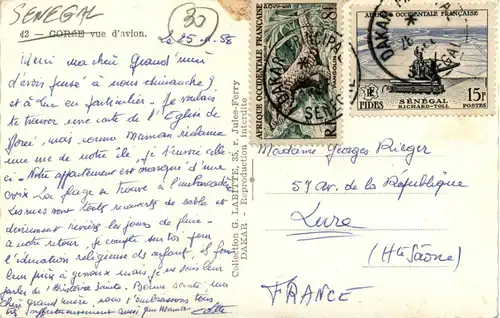 SENEGAL
30
42 - GORÉE vue d'avion.
Le 25-11-58
Merci ma chère Grand' mère
d'avoir pensé à nous dimanche
et à Luc en particulier. Je voulais
te trouver une carte de l'Eglise de
Gorée mais comme Maman réclame
une vue de notre île, je t'envoie celle
ci - Notre appartement est marqué d'une
croix La plage se trouve à l'embarcadère
Les rues sont toutes de sable et
deviennent rivières les jours de pluie -
à notre retour, je compte sur toi pour
l'éducation religieuse des enfants. Ils font
leur prière à genoux mais je ne sais leur
parler de l'Histoire Sainte. Bonne santé, ma
chère grand'mère, nous t'embrassons tous
très affectueusement ainsi que Maman
Collection G. LABITTE, 35, r. Jules-Ferry
DAKAR - Reproduction interdite
AFRIQUE OCCIDENTALE FRANÇAISE
POSTES
DAKAR
SENEGAL
AFRIQUE OCCIDENTALE FRANÇAISE
DAKAR
15F
FIDES
SÉNÉGAL
RICHARD-TOLL
POSTES
Madame Georges Rieger
57 av. de la République
Lure
(Hte Saône)
FRANCE